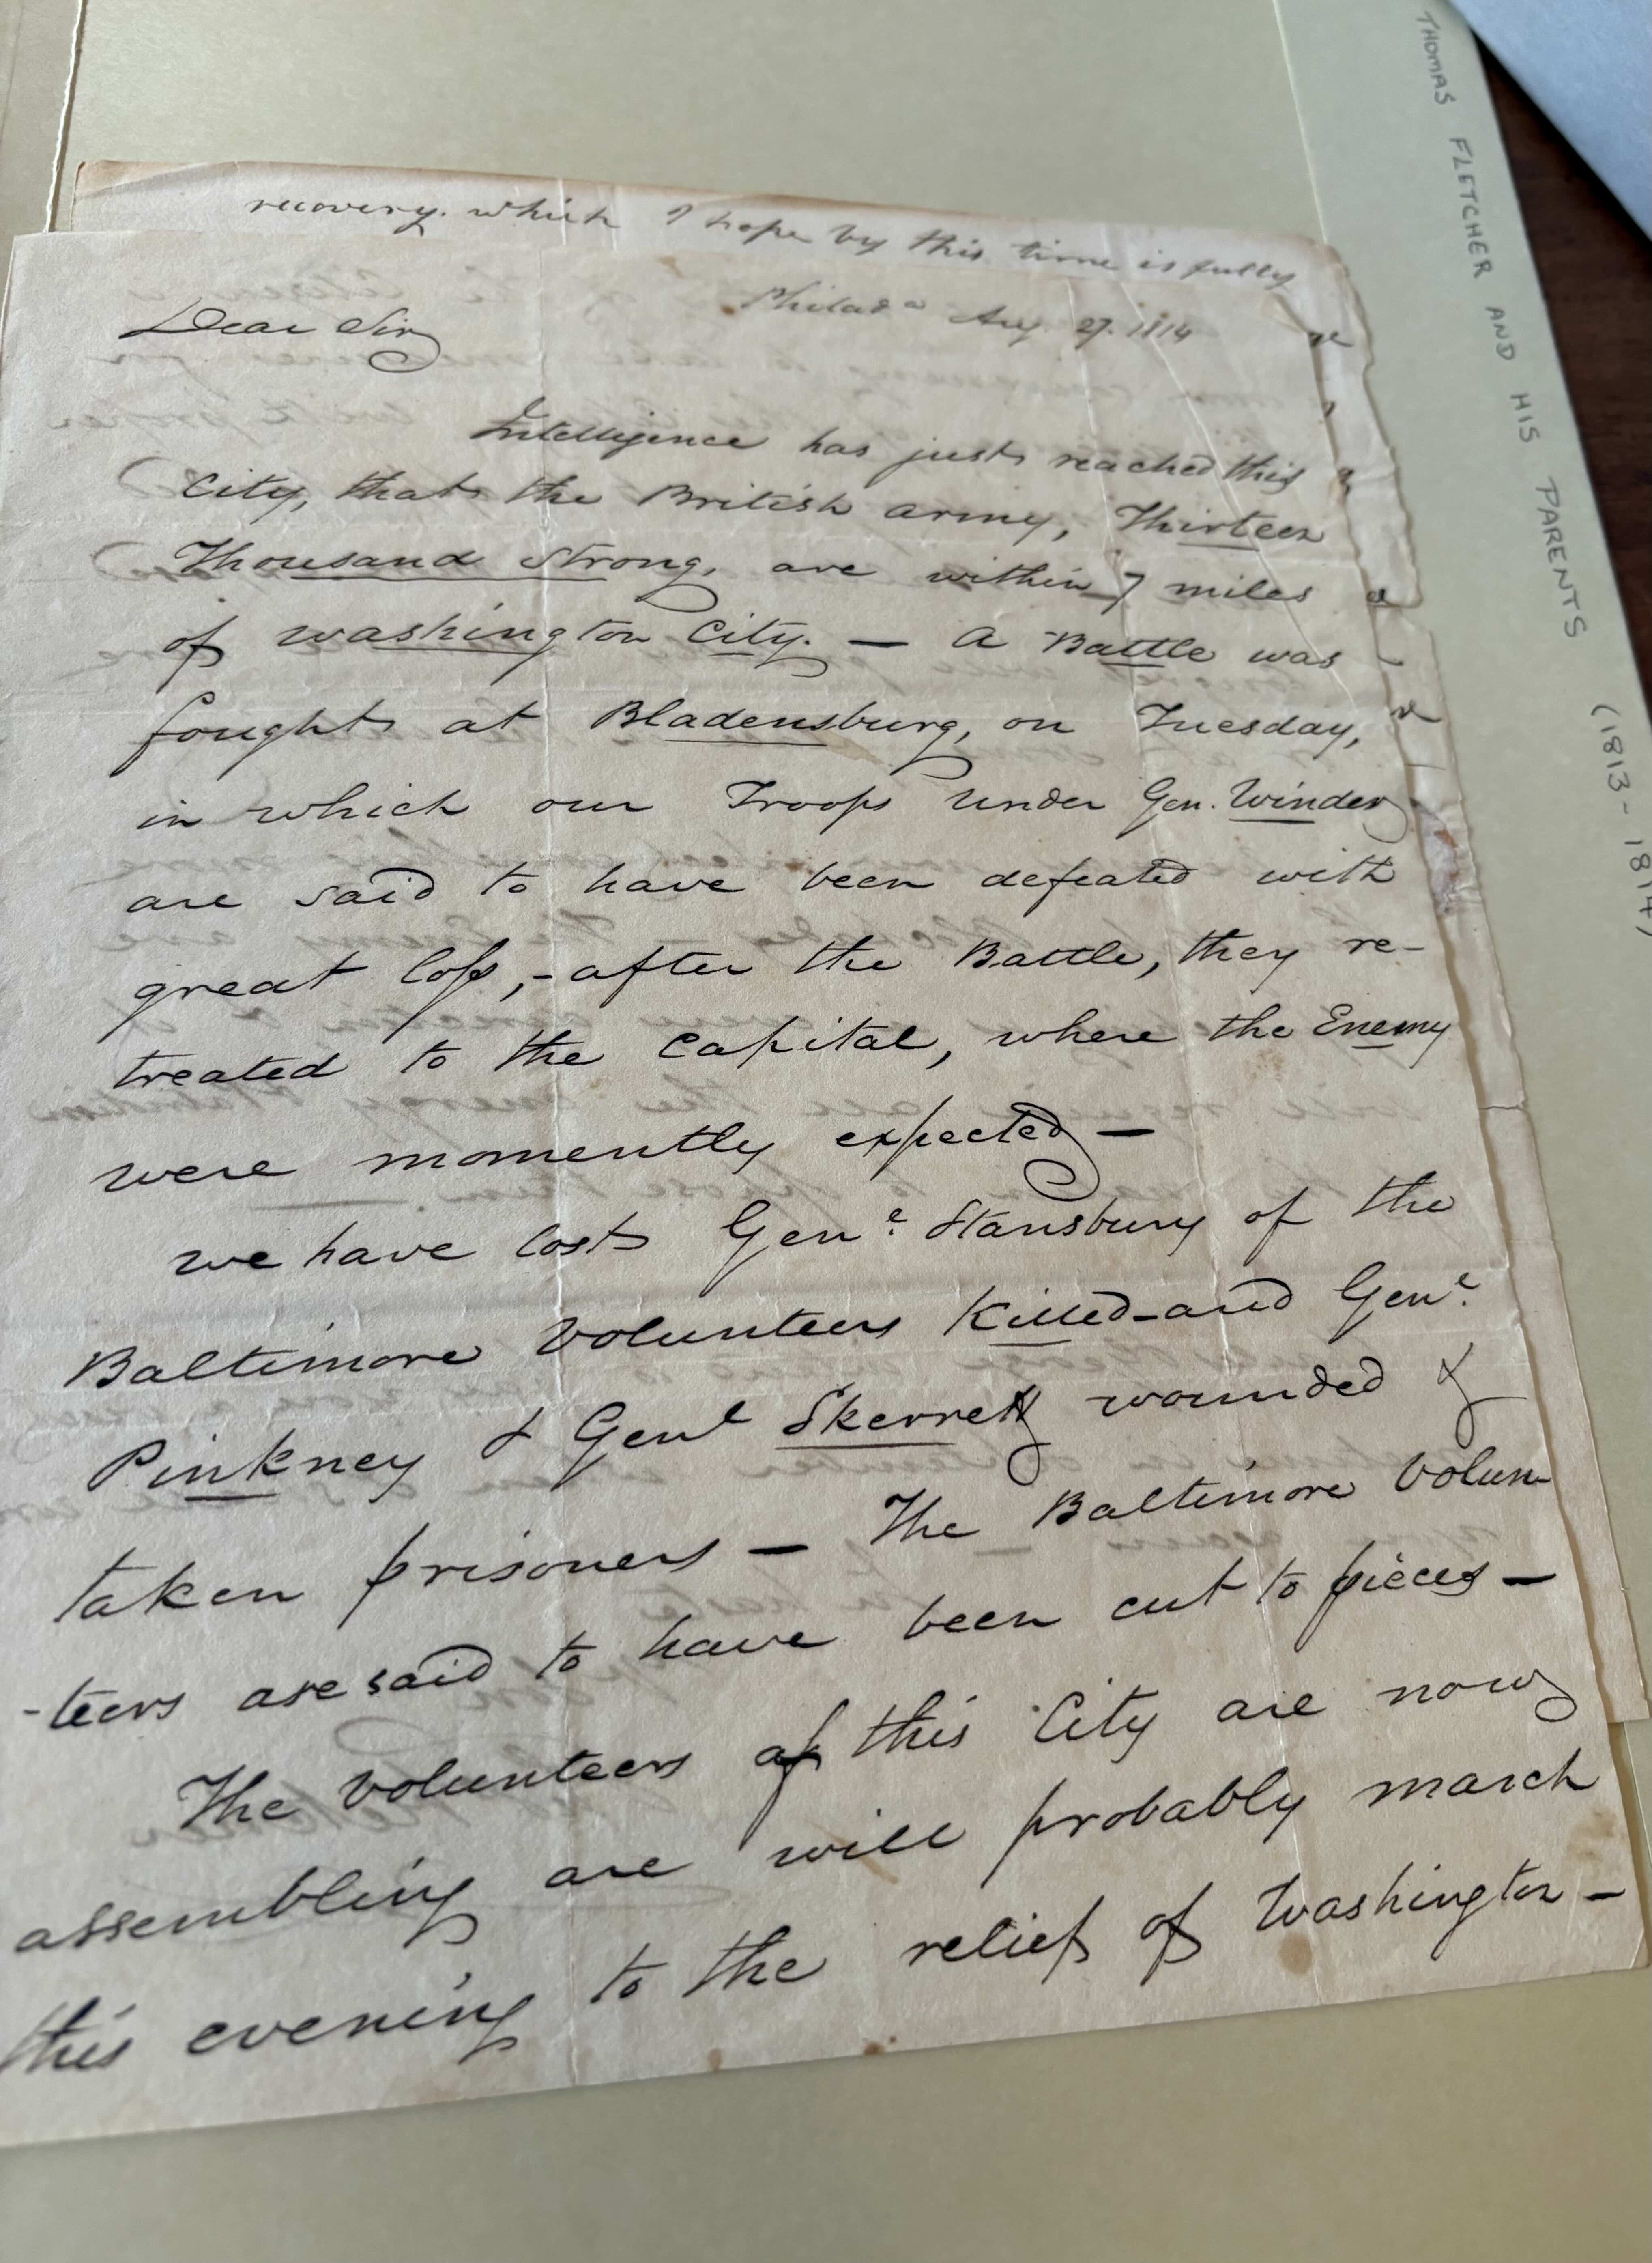 THOMAS FLETCHER AND HIS PARENTS (1813-1814)
recovery. which I hope by this time is fully
Philada Aug. 27. 1814
Dear Sir
Intelligence has just reached this
City, that the British army, Thirteen
Thousand Strong, are within 7 miles
of Washington City. — A Battle was
fought at Bladensburg, on Tuesday,
in which our Troops under Gen. Winder
are said to have been defeated with
great loss, - after the Battle, they re-
treated to the Capital, where the Enemy
were momently expected —
we have lost Genl. Stansbury of the
Baltimore Volunteers Killed - and Genl.
Pinkney & Genl Skerrett wounded &
taken prisoners — The Baltimore Volun
-teers are said to have been cut to pieces —
The Volunteers of this City are now
assembling are will probably march
this evening to the relief of Washington —